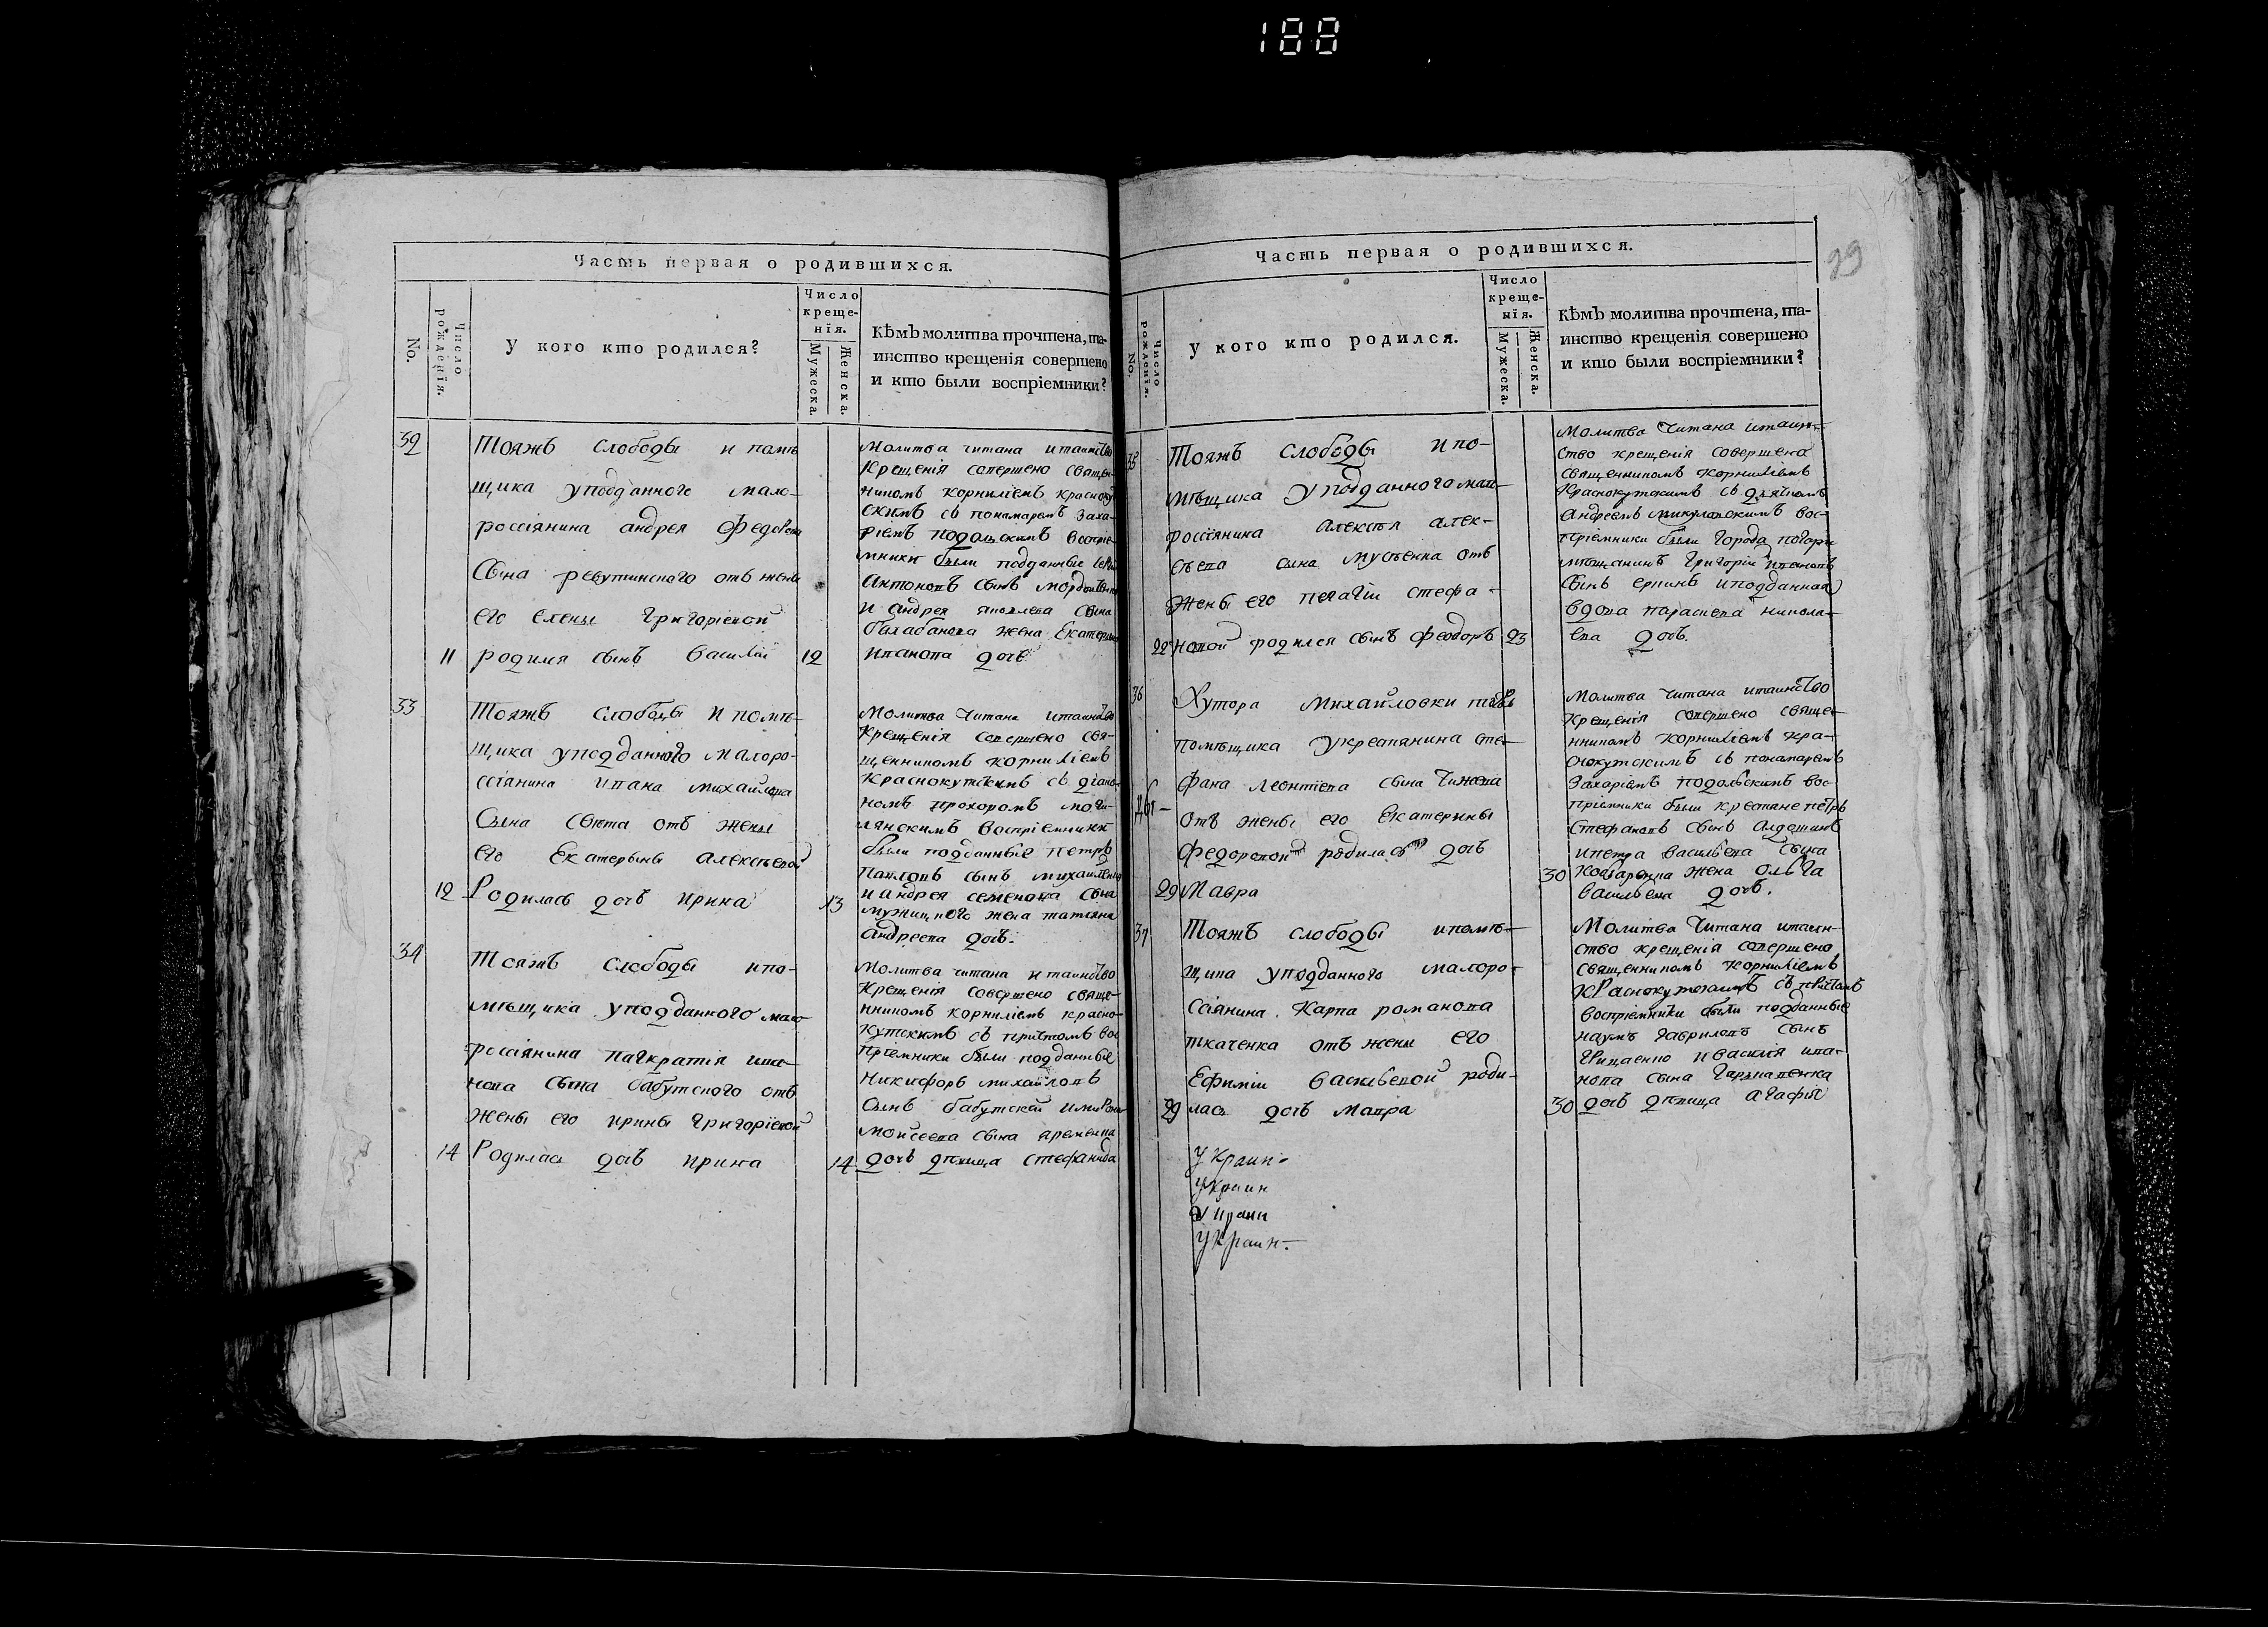 188
Часть первая о родившихся.
No.
Число рожденія.
У кого кто родился?
Число креще-нія.
Мужеска.
Женска.
Кѣмъ молитва прочтена, та-
инство крещенія совершено
и кто были воспріемники?
32
Тояжъ слободы и помѣ
щика уподданного мало-
россіянина андрея Федорова
Сына ревутинского отъ жены
его Елены Григоріевой
11 родился сынъ Василій 12
Молитва читана итаинство
Крещенія совершено священ
никомъ Корниліемъ красноку
скимъ съ понамаремъ Заха-
ріемъ подольскимъ воспріе-
мники были подданные
Антоновъ сынъ
и андрея яковлева сына
балабанова жена Екатерина
Иванова дочь
33
Тояжъ слободы И помѣ-
щика уподданного малоро-
ссіянина ивана михайлова
Сына свѣта отъ жены
его Екатерыны алексѣевой
12 Родилась дочь ирина 13
Молитва Читана итаинство
Крещенія совершено свя-
щенникомъ корниліемъ
Краснокутскимъ съ діако-
номъ прохоромъ моги-
лянскимъ воспріемники
были подданные петръ
Павловъ сынъ
и андрея семенова сына
жена татіяна
андреева дочь.
34
Тояжъ слободы ипо-
мѣщика уподданного мало
россіянина панкратія ива-
нова сына бабутского отъ
жены его ирины григоріевой
14 Родилась дочь ирина 14
Молитва читана итаинство
Крещенія совершено свяще-
нникомъ корниліемъ красно-
кутскимъ съ причтомъ вос
пріемники были подданные
Никифоръ михайловъ
Сынъ бабутскай имирона
моисеева сына яременка
дочь дѣвица стефанида
Часть первая о родившихся.
29
No.
Число рожденія.
у кого кто родился.
Число креще-нія.
Мужеска.
Женска.
Кѣмъ молитва прочтена, та-
инство крещенія совершено
и кто были воспріемники?
35
Тояжъ слободы ипо-
мѣщика уподданного мало
россіянина алексѣя алек-
сѣева сына мусѣенка отъ
жены его пелагіи стефа-
22 новой родился сынъ Феодоръ 23
Молитва Читана итаин-
ство крещенія совершено
священникомъ корниліемъ
Краснокутскимъ съ дьячкомъ
Андреемъ микуловскимъ вос-
пріемники были города
мѣщанинъ григорій ивановъ
сынъ иподданная
вдова параскева никола-
ева дочь.
36
Хутора Михайловки тогожъ
помѣщика укрестянина сте-
фана леонтіева сына
отъ жены его Екатерины
федоровой родилась дочь
29 Мавра 30
Молитва читана итаинство
Крещенія совершено свяще-
нникомъ корниліемъ кра-
снокутскимъ съ понамаремъ
Захаріемъ подольскимъ вос-
пріемники были крестяне петръ
Стефановъ сынъ
ипетра васильева сына
жена ольга
васильева дочь.
37
Тояжъ слободы ипомѣ-
щика уподданного малоро-
ссіянина Карпа романова
ткаченка отъ жены его
Ефиміи васильевой роди-
29 лась дочь мавра 30
Молитва Читана итаин-
ство крещенія совершено
священникомъ корниліемъ
Краснокутскимъ съ причтомъ
воспріемники были подданные
наумъ гавриловъ сынъ
Грицаенко ивасилія ива-
нова сына
дочь дѣвица агафія
Украин-
Украин
Украин
Украин-